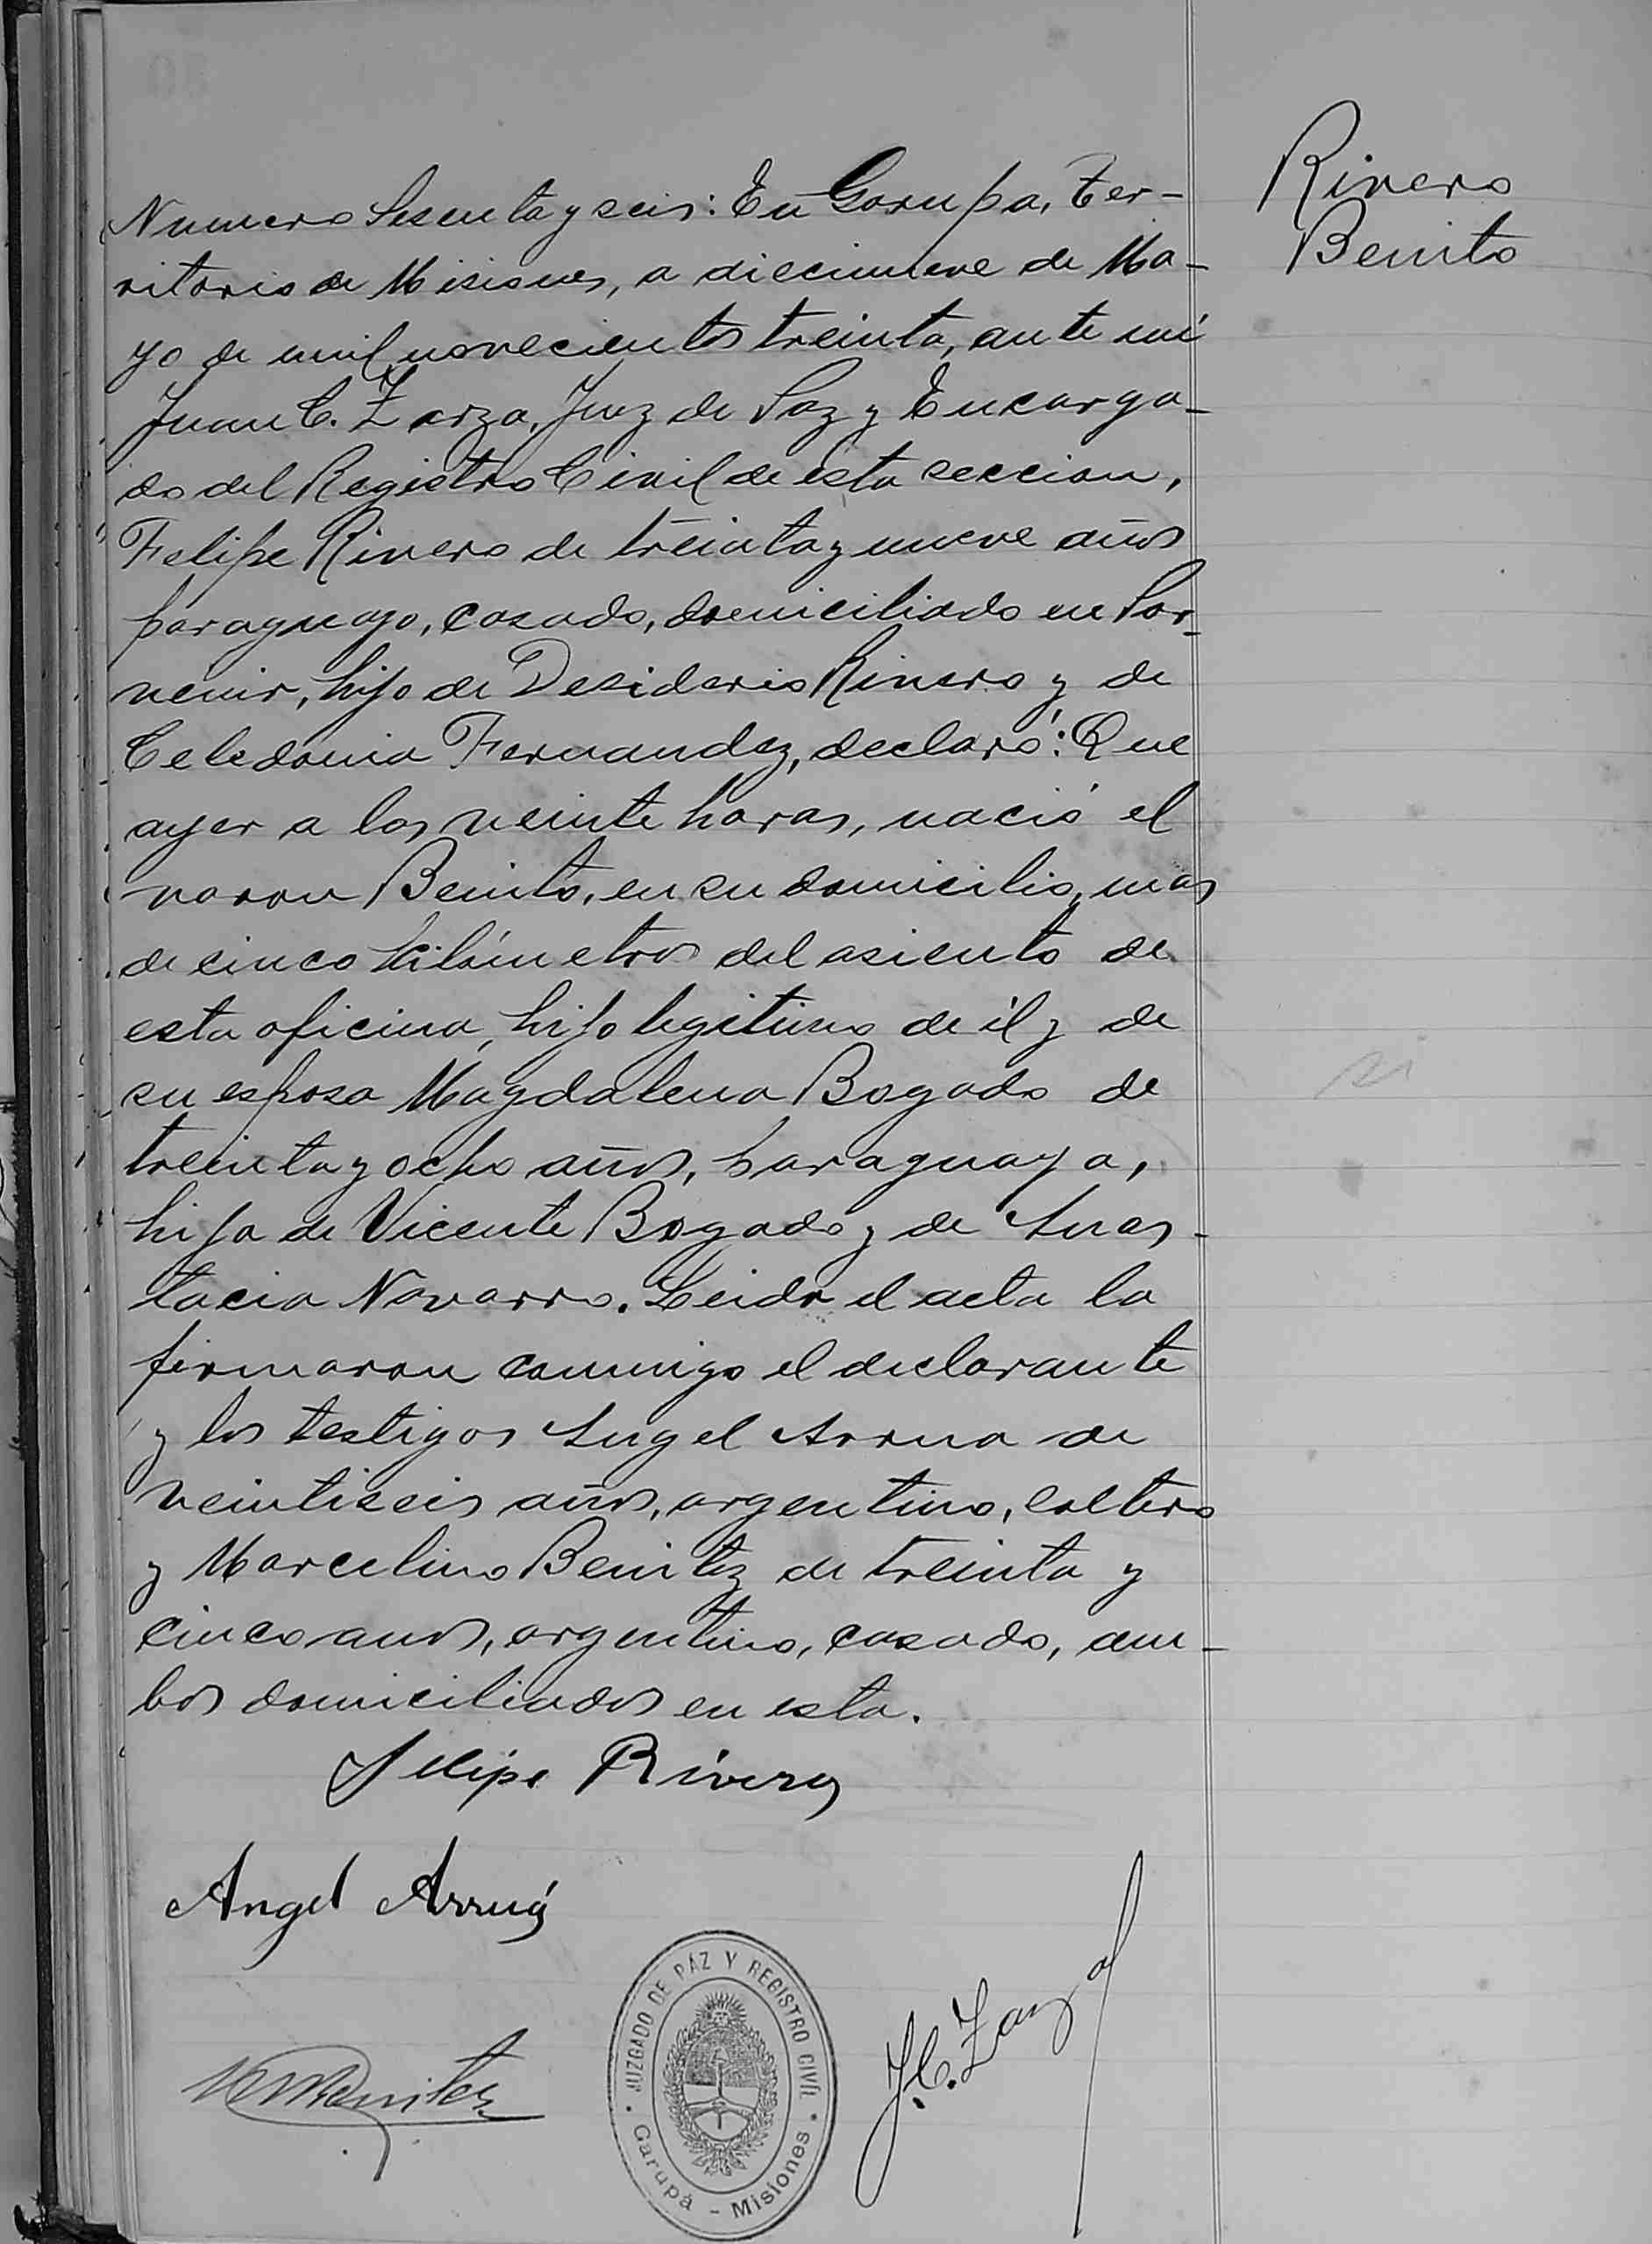 Rivero
Benito
Numero Sesenta y seis: En Garupa, Ter-
ritorio de Misiones, a diecinueve de Ma-
yo de mil novecientos treinta, ante mí
Juan C. Zarza, Juez de Paz y Encarga-
do del Registro Civil de esta seccion,
Felipe Rivero de treinta y nueve años
paraguayo, casado, domiciliado en Por-
venir, hijo de Desiderio Rivero y de
Celedonia Fernandez, declaró: Que
ayer a las veinte horas, nació el
varon Benito, en su domicilio, mas
de cinco kilómetros del asiento de
esta oficina, hijo legitimo de él y de
su esposa Magdalena Bogado de
treinta y ocho años, paraguaya,
hija de Vicente Bogado y de Anas-
tacia Navarro. Leida el acta la
firmaron conmigo el declarante
y los testigos Angel Arrua de
veintiseis años, argentino, soltero
y Marcelino Benitez de treinta y
cinco anos, argentino, casado, am-
bos domiciliados en esta.
Felipe Rivero
Angel Arruá
Benitez
J.C. Zarza
JUZGADO DE PAZ Y REGISTRO CIVIL
Garupá - Misiones
si